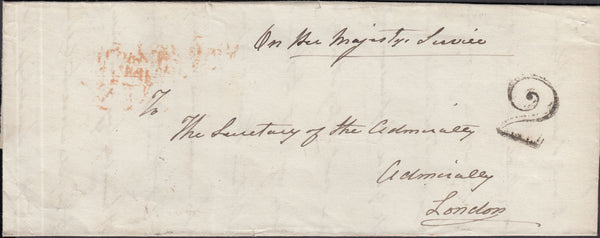 On Her Majestys Service
2
To
The Secretary of the Admiralty
Admiralty
London